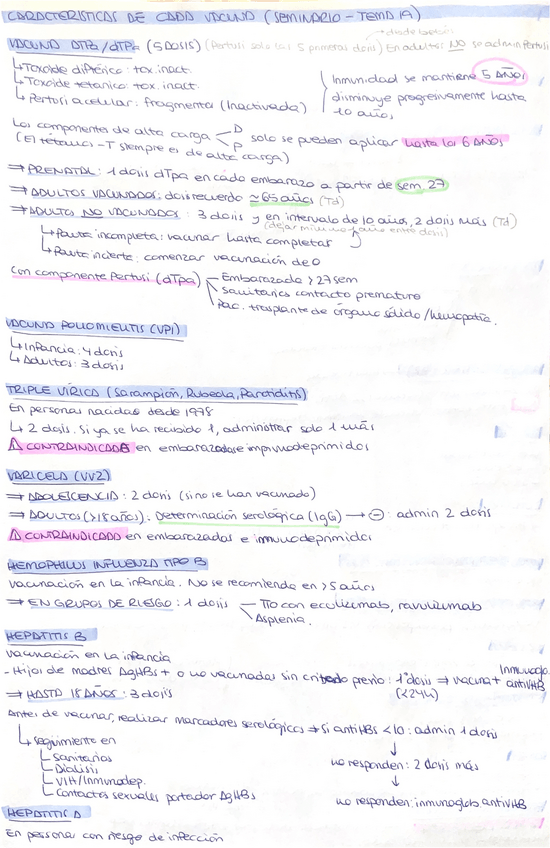 CARACTERÍSTICAS DE CADA VACUNA (SEMINARIO - TEMA 19)
desde bebés
VACUNA DTPa/dTPa (5 DOSIS) (Pertusi solo las 5 primeras dosis) En adultos NO se admin Pertusi
↳ Toxoide diftérico: tox. inact.
↳ Toxoide tetánico: tox. inact.
↳ Pertusi acelular: fragmento (Inactivada)
Inmunidad se mantiene 5 AÑOS
disminuye progresivamente hasta
10 años
Los componentes de alta carga < D P solo se pueden aplicar hasta los 6 AÑOS
(El tétanos - T siempre es de alta carga)
⇒ PRENATAL: 1 dosis dTpa en cada embarazo a partir de sem. 27
⇒ ADULTOS VACUNADOS: dosis recuerdo ≃ 65 años (Td)
⇒ ADULTO NO VACUNADOS: 3 dosis y en intervalo de 10 años, 2 dosis más (Td)
(dejar mínimo 1 año entre dosis)
↳ Pauta incompleta: vacunar hasta completar
↳ Pauta incierta: comenzar vacunación de 0
Con componente Pertusi (dTpa) — Embarazada > 27 sem
Sanitarios contacto prematuro
Pac. trasplante de órgano sólido / hemopatía.
VACUNA POLIOMIELITIS (VPI)
↳ Infancia: 4 dosis
↳ Adultos: 3 dosis
TRIPLE VÍRICA (Sarampión, Rubeola, Parotiditis)
En personas nacidas desde 1978
↳ 2 dosis. Si ya se ha recibido 1, administrar solo 1 más
⚠ CONTRAINDICADA en embarazadas e inmunodeprimidos
VARICELA (VVZ)
⇒ ADOLESCENCIA: 2 dosis (si no se han vacunado)
⇒ ADULTOS (>18 años). Determinación serológica (IgG) → ⊖: admin 2 dosis
⚠ CONTRAINDICADO en embarazadas e inmunodeprimidos
HEMOPHILUS INFLUENZA TIPO B
Vacunación en la infancia. No se recomienda en >5 años
⇒ EN GRUPOS DE RIESGO: 1 dosis — Tto con eculizumab, ravulizumab
Asplenia.
HEPATITIS B
Vacunación en la infancia
- Hijos de madres AgHBs + o no vacunadas sin cribado previo: 1ª dosis ⇒ vacuna + Inmunoglo. antiVHB
(<24h)
⇒ HASTA 18 AÑOS: 3 dosis
Antes de vacunar, realizar marcadores serológicos ⇒ Si antiHBs <10: admin 1 dosis
↳ seguimiento en
↓
Sanitarios
no responden: 2 dosis más
Diálisis
↓
VIH/Inmunodep.
Contactos sexuales portador AgHBs
no responden: inmunoglob antiVHB
HEPATITIS A
En personas con riesgo de infección